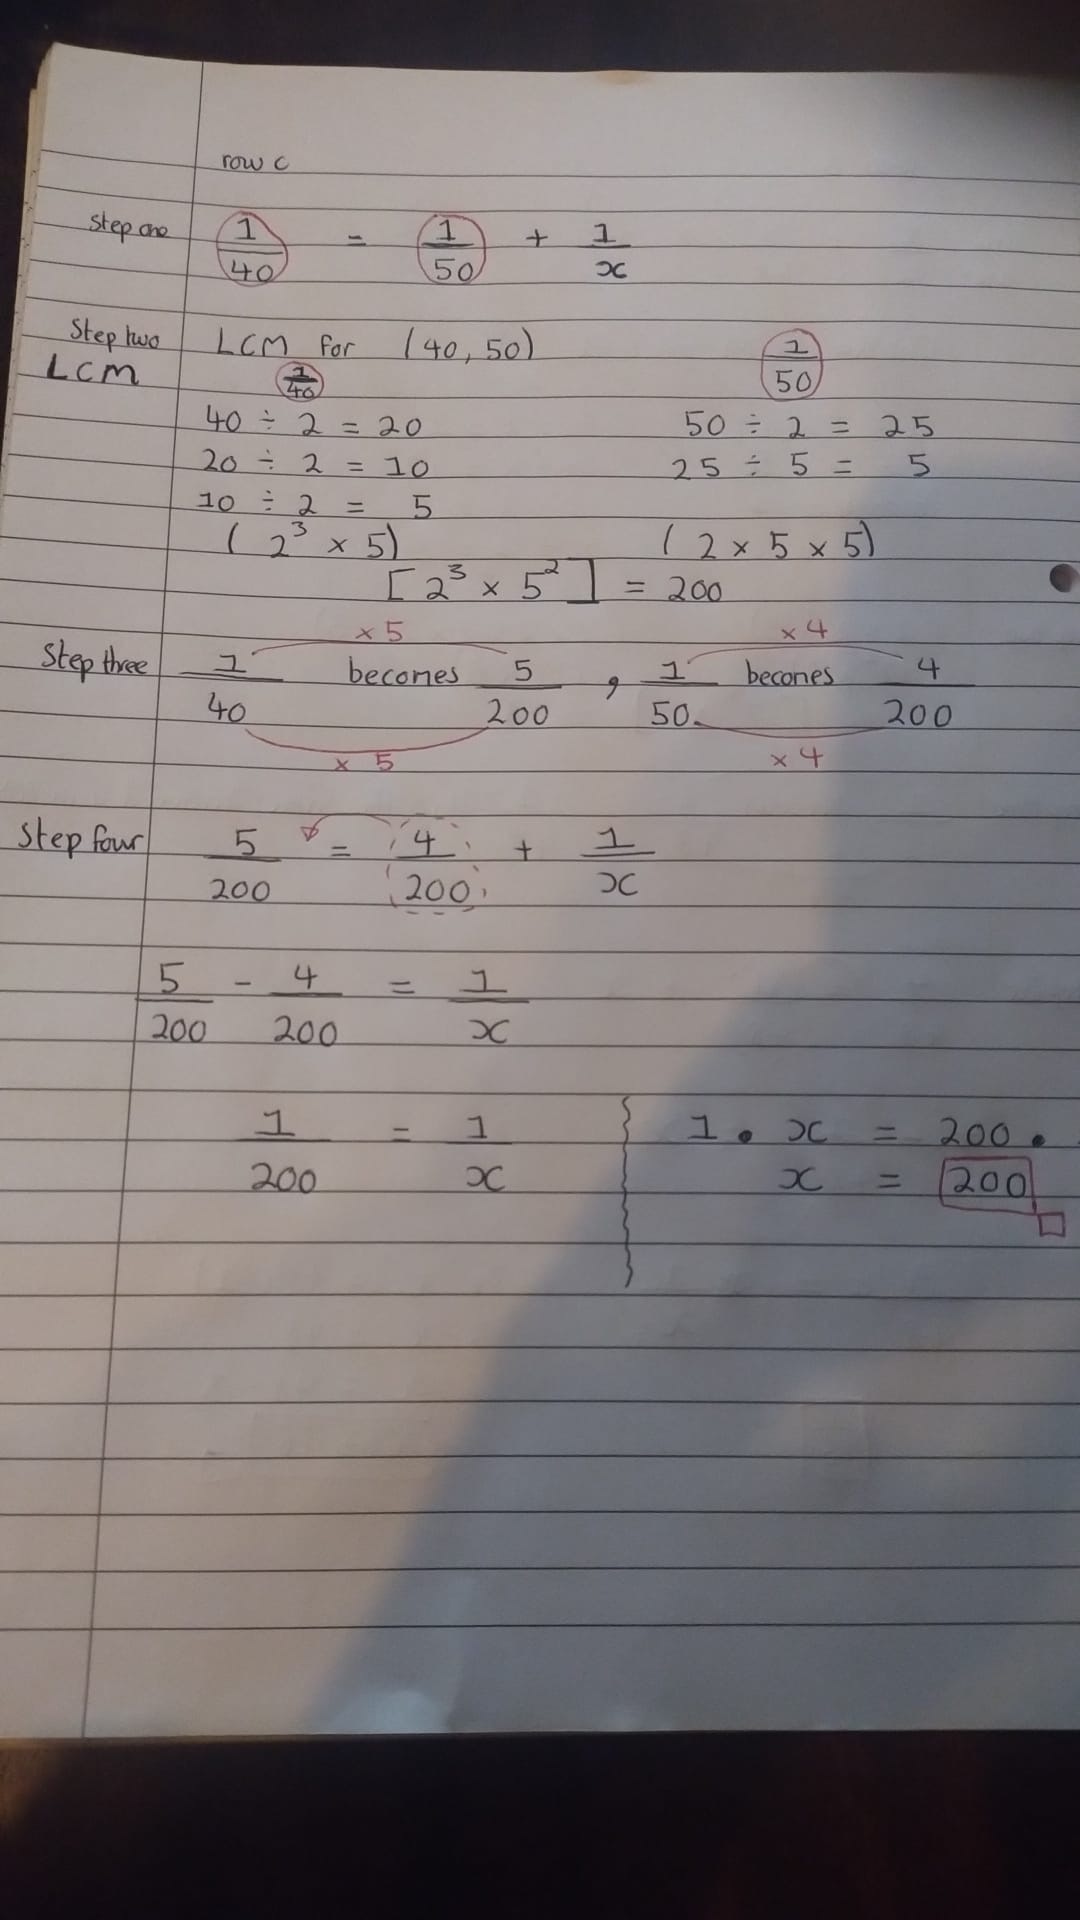 row c
Step one 1/40 = 1/50 + 1/x
Step two LCM for (40, 50) 1/50
LCM 1/40
40 ÷ 2 = 20 50 ÷ 2 = 25
20 ÷ 2 = 10 25 ÷ 5 = 5
10 ÷ 2 = 5
(2³ × 5) (2 × 5 × 5)
[2³ × 5²] = 200
×5 ×4
Step three 1/40 becomes 5/200 , 1/50 becomes 4/200
×5 ×4
Step four 5/200 = 4/200 + 1/x
5/200 - 4/200 = 1/x
1/200 = 1/x 1 • x = 200 •
x = 200